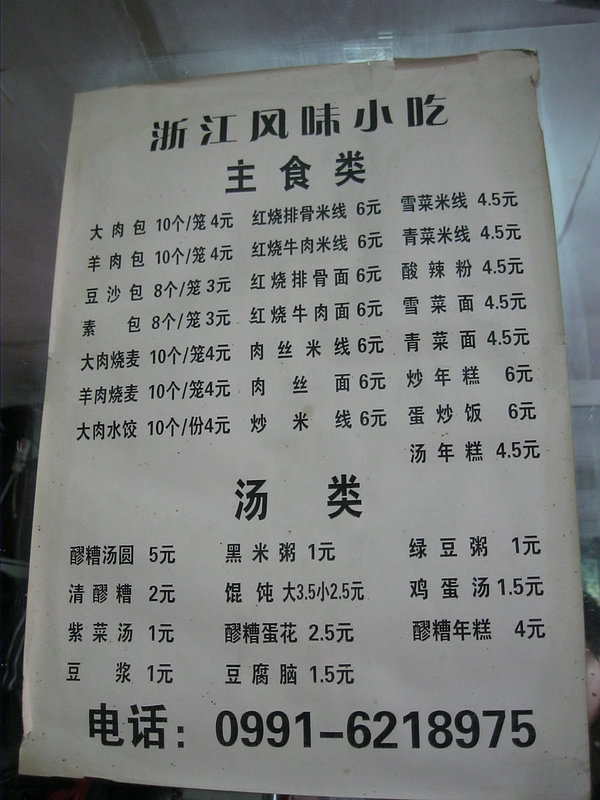 浙江风味小吃
主食类
大肉包 10个/笼 4元 红烧排骨米线 6元 雪菜米线 4.5元
羊肉包 10个/笼 4元 红烧牛肉米线 6元 青菜米线 4.5元
豆沙包 8个/笼 3元 红烧排骨面 6元 酸辣粉 4.5元
素包 8个/笼 3元 红烧牛肉面 6元 雪菜面 4.5元
大肉烧麦 10个/笼4元 肉丝米线 6元 青菜面 4.5元
羊肉烧麦 10个/笼4元 肉丝面 6元 炒年糕 6元
大肉水饺 10个/份4元 炒米线 6元 蛋炒饭 6元
汤年糕 4.5元
汤类
醪糟汤圆 5元 黑米粥 1元 绿豆粥 1元
清醪糟 2元 馄饨 大3.5小2.5元 鸡蛋汤 1.5元
紫菜汤 1元 醪糟蛋花 2.5元 醪糟年糕 4元
豆浆 1元 豆腐脑 1.5元
电话：0991-6218975